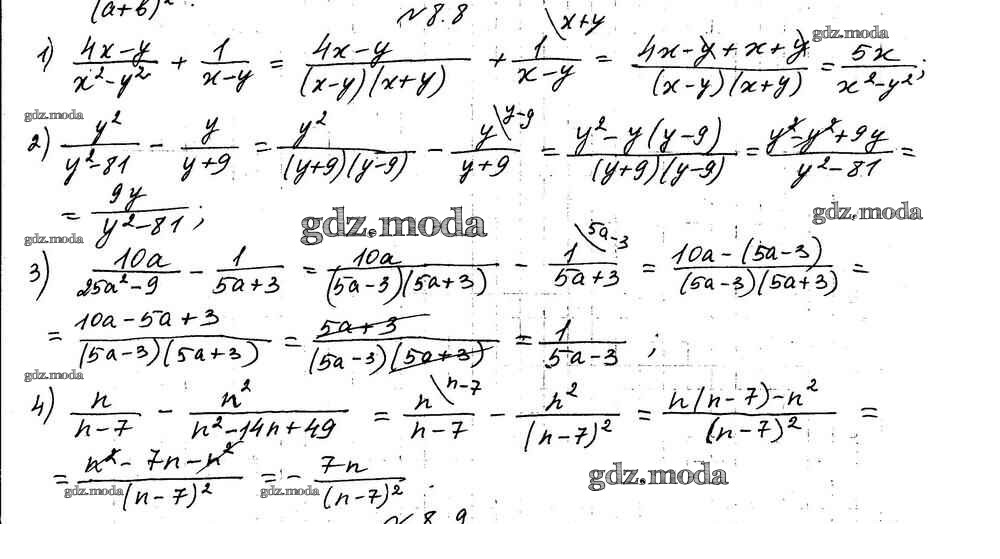 (a+b)².
№ 8.8
1) (4x-y)/(x²-y²) + 1/(x-y) = (4x-y)/((x-y)(x+y)) + 1\x+y/(x-y) = (4x-y+x+y)/((x-y)(x+y)) = 5x/(x²-y²);
gdz.moda
gdz.moda
2) y²/(y²-81) - y/(y+9) = y²/((y+9)(y-9)) - y\y-9/(y+9) = (y²-y(y-9))/((y+9)(y-9)) = (y²-y²+9y)/(y²-81) =
= 9y/(y²-81);
gdz.moda
gdz.moda
gdz.moda
3) 10a/(25a²-9) - 1/(5a+3) = 10a/((5a-3)(5a+3)) - 1\5a-3/(5a+3) = (10a-(5a-3))/((5a-3)(5a+3)) =
= (10a-5a+3)/((5a-3)(5a+3)) = (5a+3)/((5a-3)(5a+3)) = 1/(5a-3);
gdz.moda
4) n/(n-7) - n²/(n²-14n+49) = n\n-7/(n-7) - n²/(n-7)² = (n(n-7)-n²)/(n-7)² =
= (n²-7n-n²)/(n-7)² = - 7n/(n-7)².
gdz.moda
gdz.moda
gdz.moda
№ 8.9